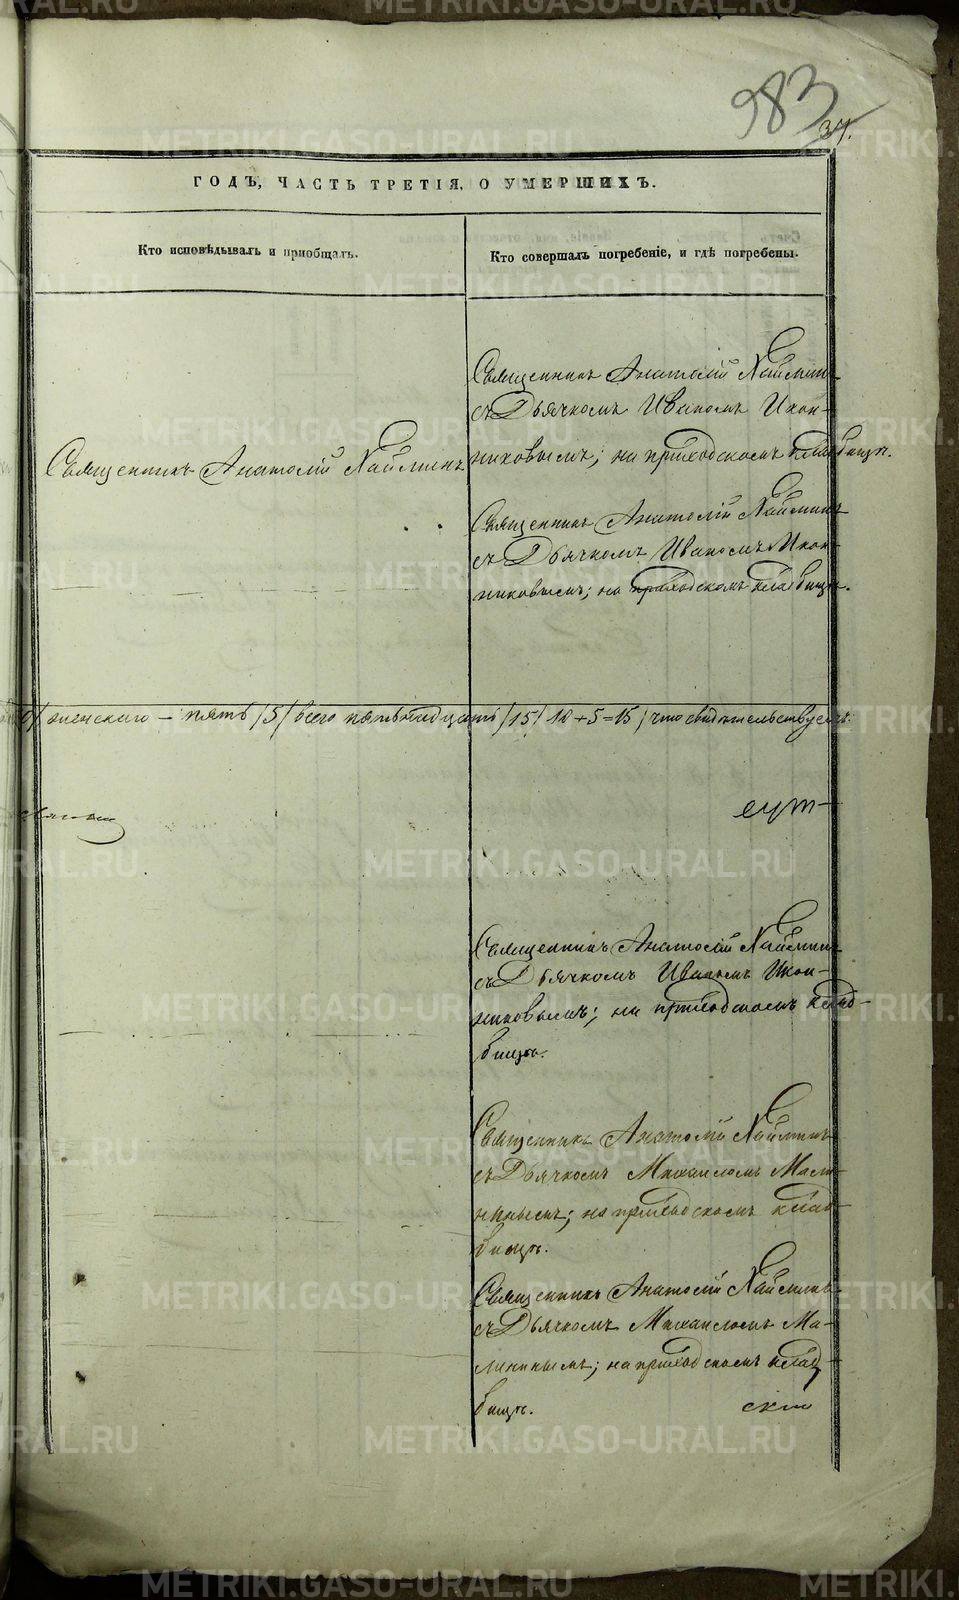 983
37.
ГОДЪ, ЧАСТЬ ТРЕТІЯ, О УМЕРШИХЪ.
Кто исповѣдывалъ и пріобщалъ.
Кто совершалъ погребеніе, и гдѣ погребены.
Священникъ Анатолій Наймшинъ
Священникъ Анатолій
съ Дьячкомъ Иваномъ Икон-
никовымъ; на приходскомъ кладбищѣ.
Священникъ Анатолій
съ Дьячкомъ Иваномъ Икон-
никовымъ; на приходскомъ кладбищѣ.
женскаго – пять /5/ всего пятьнадцать /15/ 10 + 5 = 15 / что свидѣтельствуемъ:
Священникъ Анатолій
съ Дьячкомъ Иваномъ Икон-
никовымъ; на приходскомъ клад-
бищѣ.
Священникъ Анатолій
съ Дьячкомъ Михаиломъ
на приходскомъ клад-
бищѣ.
Священникъ Анатолій
съ Дьячкомъ Михаиломъ Ма-
лининымъ; на приходскомъ клад-
бищѣ.
METRIKI.GASO-URAL.RU